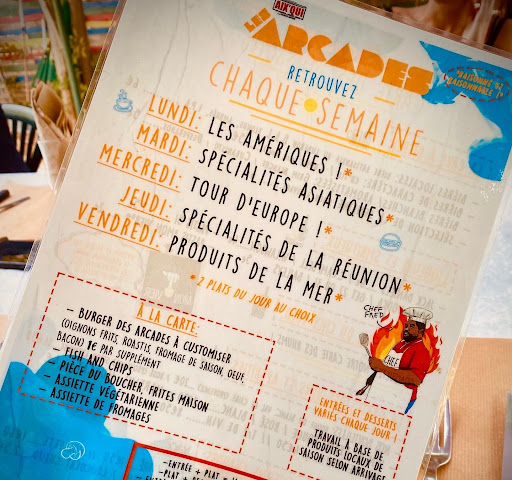 AIX'QUI
LES
ARCADES
RETROUVEZ
CHAQUE SEMAINE
LUNDI: LES AMÉRIQUES !*
MARDI: SPÉCIALITÉS ASIATIQUES*
MERCREDI: TOUR D'EUROPE !*
JEUDI: SPÉCIALITÉS DE LA RÉUNION*
VENDREDI: PRODUITS DE LA MER*
*2 PLATS DU JOUR AU CHOIX
À LA CARTE:
- BURGER DES ARCADES À CUSTOMISER
(OIGNONS FRITS, ROASTIS, FROMAGE DE SAISON, OEUF,
BACON) 1€ PAR SUPPLÉMENT
- FISH AND CHIPS
- PIÈCE DU BOUCHER, FRITES MAISON
- ASSIETTE VÉGÉTARIENNE
- ASSIETTE DE FROMAGES
CHEF FRED
CHEF
ENTRÉES ET DESSERTS
VARIÉS CHAQUE JOUR !
TRAVAIL À BASE DE
PRODUITS LOCAUX DE
SAISON SELON ARRIVAGE
-ENTRÉE + PLAT =
-PLAT +